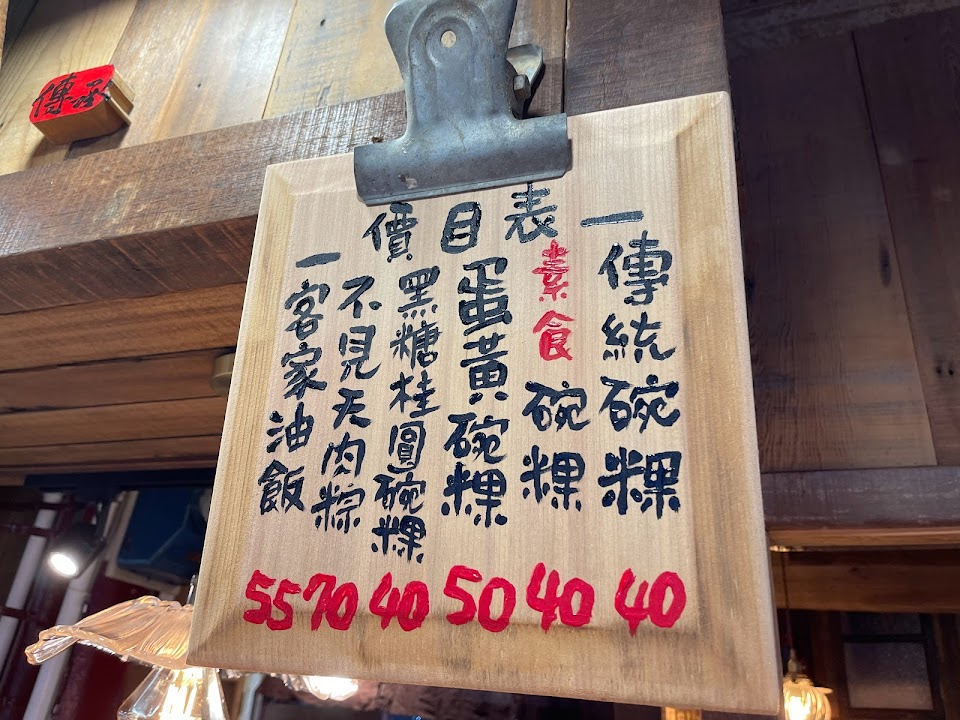 傳承
一 價目表 一
傳統碗粿 40
素食碗粿 40
蛋黃碗粿 50
黑糖桂圓碗粿 40
不見天肉粽 70
客家油飯 55